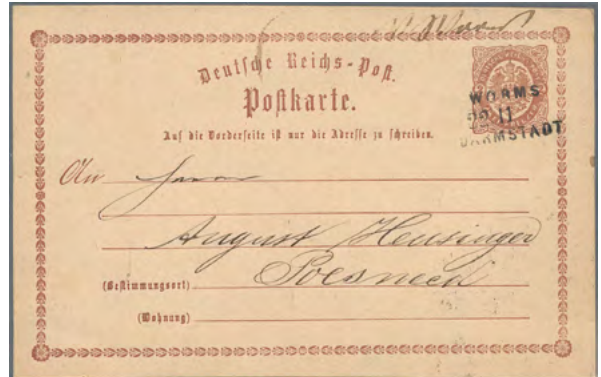 Deutsche Reichs-Post.
Postkarte.
Auf die Vorderseite ist nur die Adresse zu schreiben.
WORMS
22 11
DARMSTADT
An Herrn
August Heusinger
(Bestimmungsort)
(Wohnung)